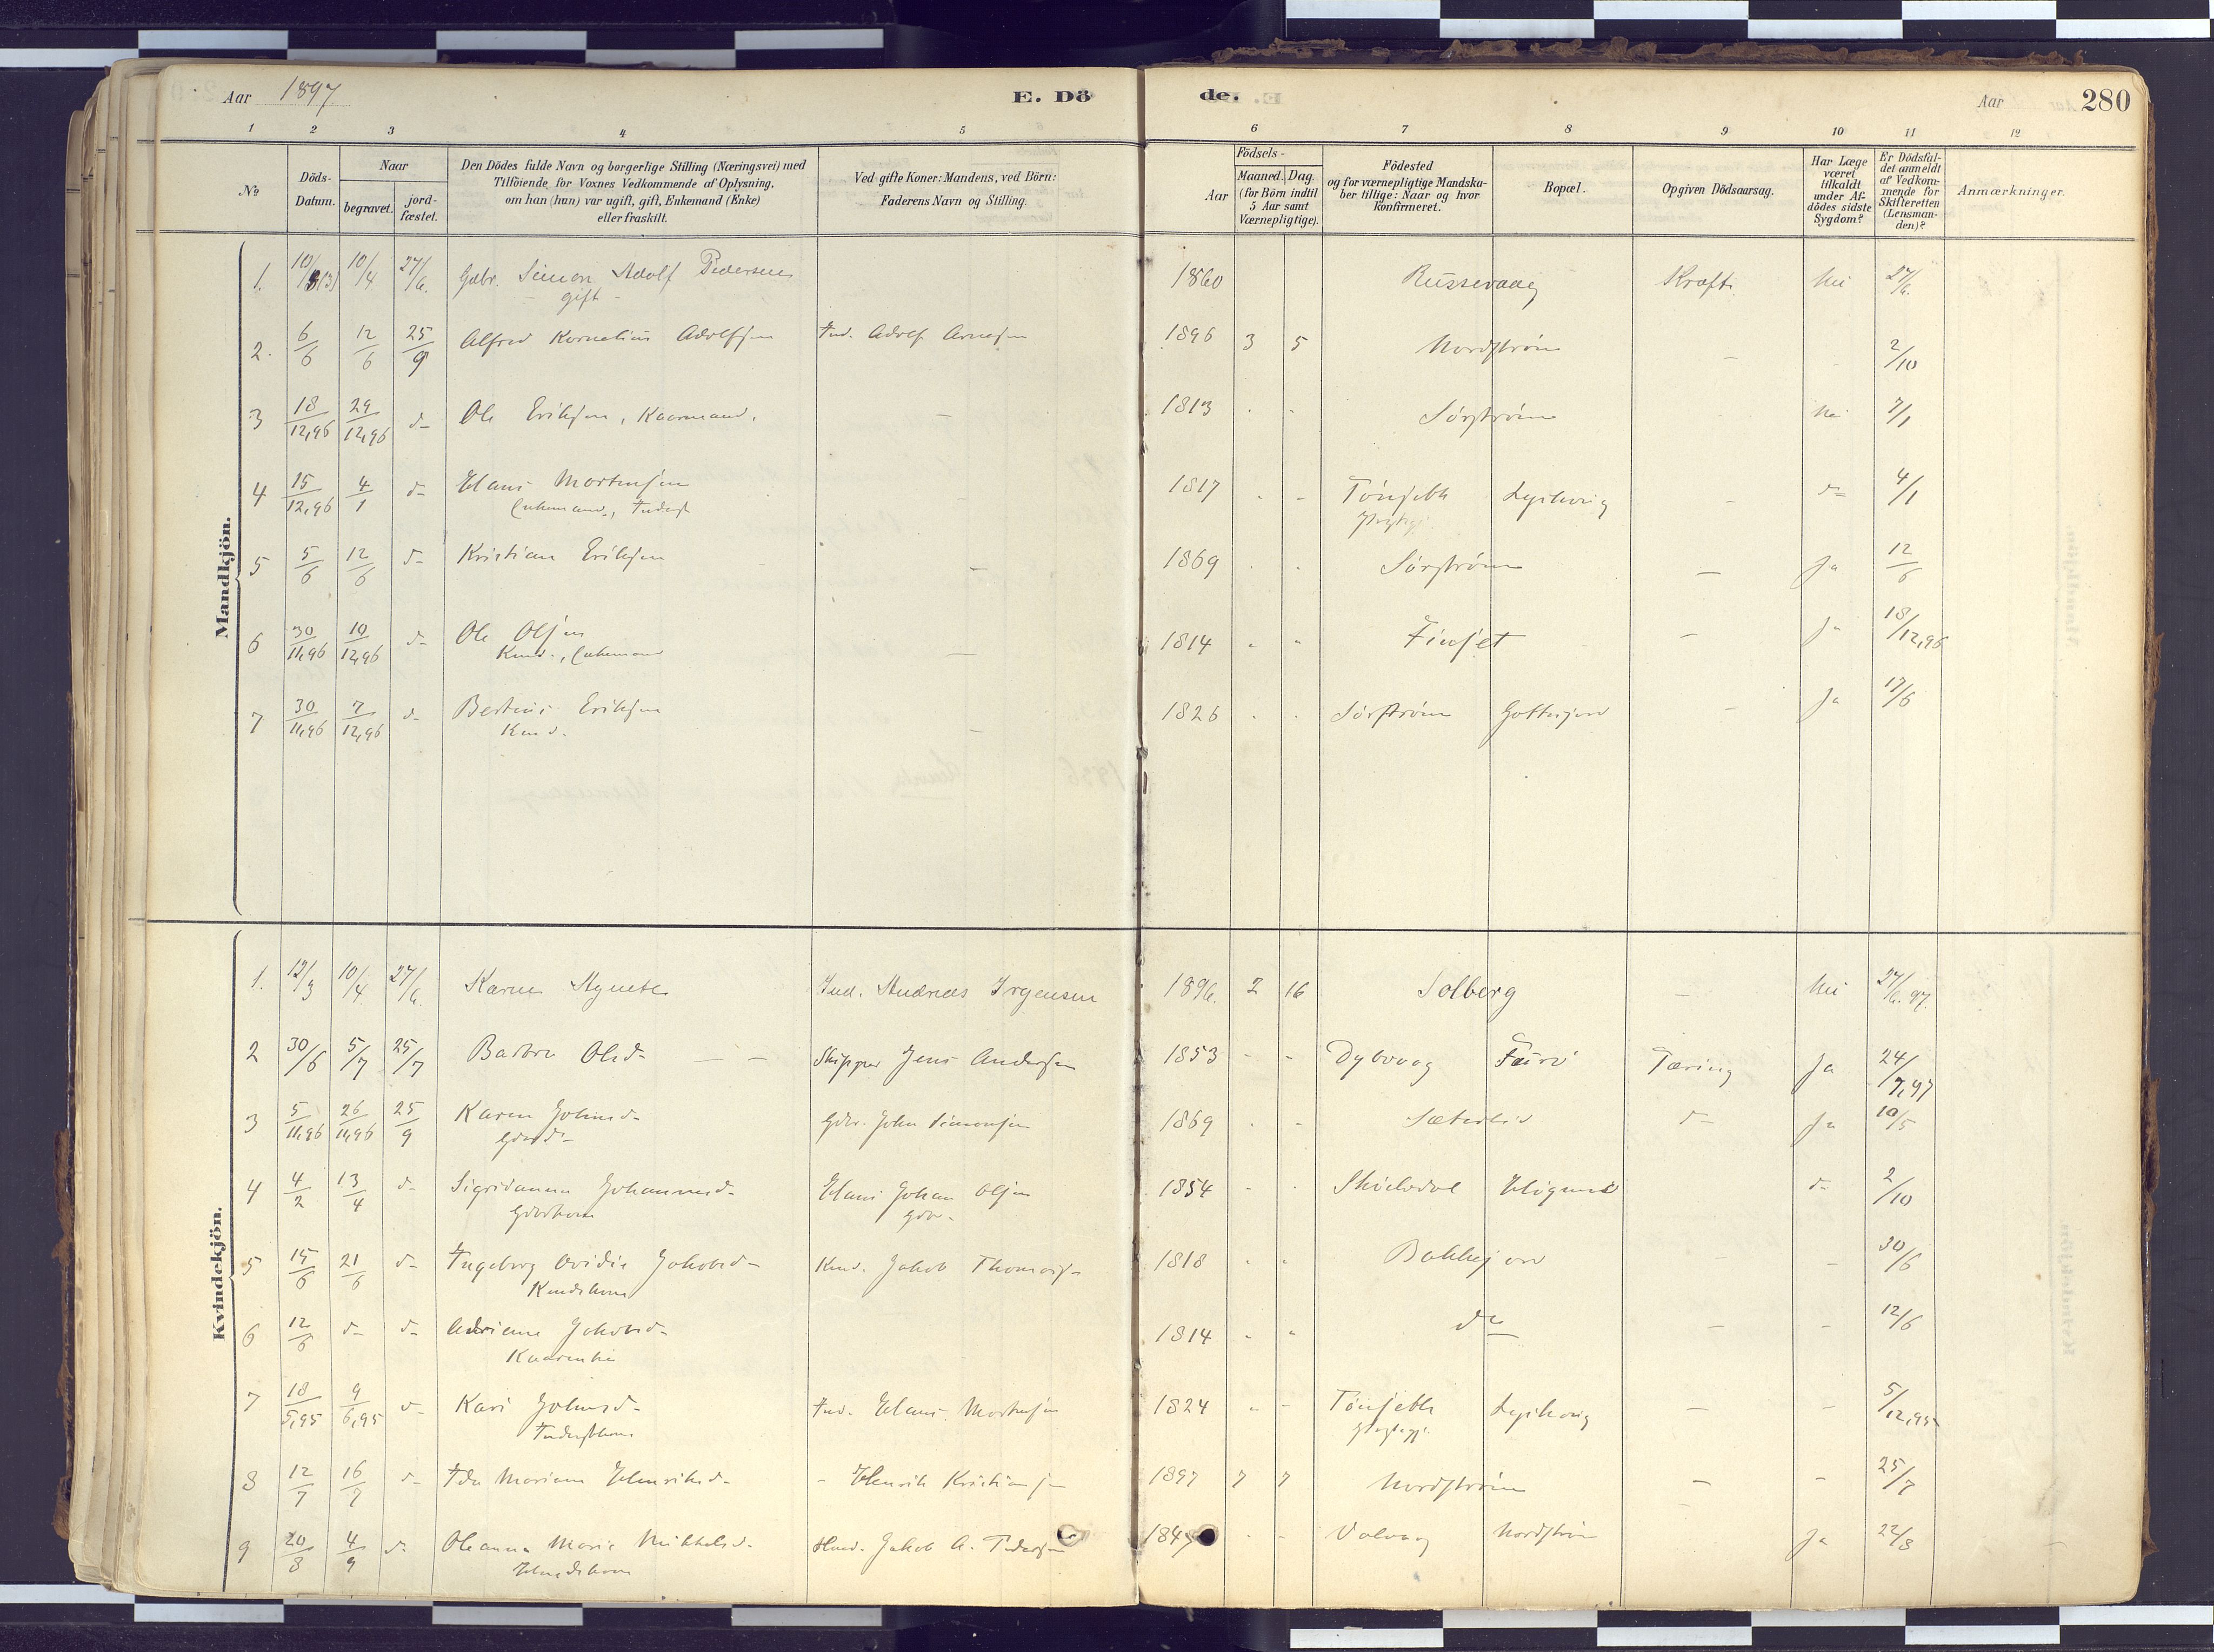 Aar 1897 E. Dö de. Aar 280
1 2 3 4 5 6 7 8 9 10 11 12
№
Döds-Datum.
Naar
begravet.
jord-fæstet.
Den Dödes fulde Navn og borgerlige Stilling (Næringsvei) med
Tilföiende for Voxnes Vedkommende af Oplysning,
om han (hun) var ugift, gift, Enkemand (Enke)
eller fraskilt.
Ved gifte Koner: Mandens, ved Börn:
Faderens Navn og Stilling.
Födsels-
Aar
Maaned. Dag.
(for Börn indtil
5 Aar samt
Værnepligtige).
Födested
og for værnepligtige Mandska-
ber tillige: Naar og hvor
konfirmeret.
Bopæl.
Opgiven Dödsaarsag.
Har Læge
været
tilkaldt
under Af-
dödes sidste
Sygdom?
Er Dödsfal-
det anmeldt
af Vedkom-
mende for
Skifteretten
(Lensman-
den)?
Anmærkninger.
Mandkjön.
1. 10/4 27/6. Gbr. Simon Adolf Pedersen 1860 Russevaag Kræft Nei 27/6.
- gift -
2. 6/6 12/6 25/9 Alfred Kornelius Adolfsen Ind. Adolf Arnesen 1896 3 5 Nordstrøm - 2/10
3 18/12,96 29/12,96 d- Ole Eriksen, Kaarmand. - 1813 Sørstrøm Nei 7/1
4 15/12,96 4/1 d- Hans Mortensen - 1817 Tönseth Lysbotn - d- 4/1
Enkemand, Inderst
5 5/6 12/6 d- Kristian Eriksen - 1869 Sørstrøm - Ja 12/6
6 30/11,96 10/12,96 d- Ole Olsen - 1814 Finset - Ja 18/12,96
Kmd., Enkemand
7 30/11,96 7/12,96 d- Bertius Eriksen - 1826 Sørstrøm - Ja 17/6
Kmd.
Kvindekjön.
1. 12/3 10/4 27/6. Karen Agnete Ind. Andreas Irgensen 1896. 2 16 Solberg - Nei 27/6. 97.
2 30/6 5/7 25/7 Barbro Olsd- - - Skipper Jens Andersen 1853 Dybvaag Faurö Tæring Ja 24/7,97
3 5/11,96 26/11,96 25/9 Karen Johnsd- Gbr. John Simonsen 1869 Sæterlid d- Ja 10/5
4 4/2 13/4 d- Sigridanna Johannesd- Hans Johan Olsen 1854 d- 2/10
Gbr.
5 15/6 21/6 d- Ingeborg Ovidie Jakobsd- Kmd. Jakob Thomass- 1818 Bakkejord - 30/6
Kmdskone
6 12/6 d- d- Adriane Jakobsd- 1814 do - - 12/6
7 18/5,95 9/6,95 d- Kari Johnsd- Ind. Hans Mortensen 1824 Tönseth - - 5/12,95
Inderstkone
8 12/7 16/7 d- Ida Mariane Henriksd- - Henrik Kristiansen 1897 7 7 Nordstrøm - - 25/7
9 20/8 4/9 d- Oleanna Marie Mikkelsd- Hmd. Jakob A. Pedersen Valvaag Nordstrøm Ja 22/8